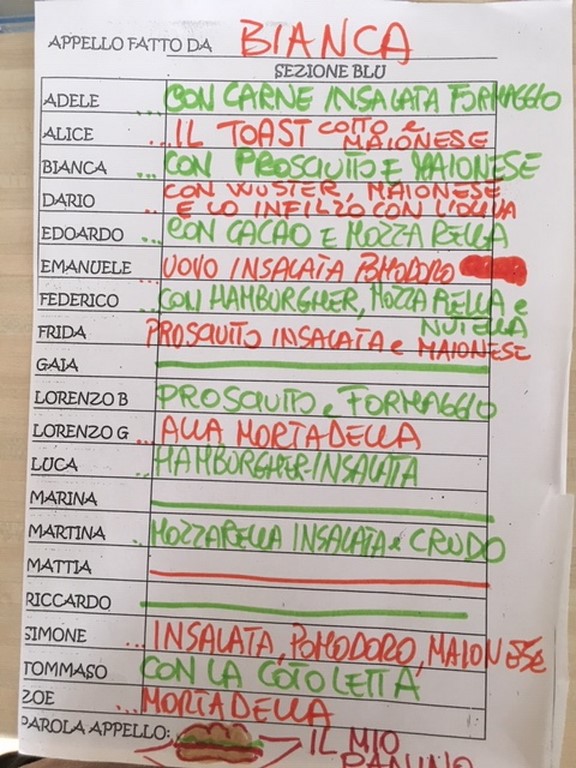 APPELLO FATTO DA BIANCA
SEZIONE BLU
ADELE ...CON CARNE INSALATA FORMAGGIO
ALICE ...IL TOAST COTTO e
MAIONESE
BIANCA ... CON PROSCIUTTO E MAIONESE
DARIO CON WUSTER, MAIONESE
.. E LO INFILZO CON L'OLIVA
EDOARDO ... CON CACAO E MOZZARELLA
EMANUELE ..UOVO INSALATA POMODORO
FEDERICO ..CON HAMBURGHER, MOZZARELLA e
NUTELLA
FRIDA PROSCIUTTO INSALATA e MAIONESE
GAIA
LORENZO B PROSCIUTTO e FORMAGGIO
LORENZO G ...ALLA MORTADELLA
LUCA ..HAMBURGHER-INSALATA
MARINA
MARTINA ..MOZZARELLA INSALATA e CRUDO
MATTIA
RICCARDO
SIMONE ...INSALATA, POMODORO, MAIONESE
TOMMASO CON LA COTOLETTA
ZOE ...MORTADELLA
PAROLA APPELLO: IL MIO
PANINO